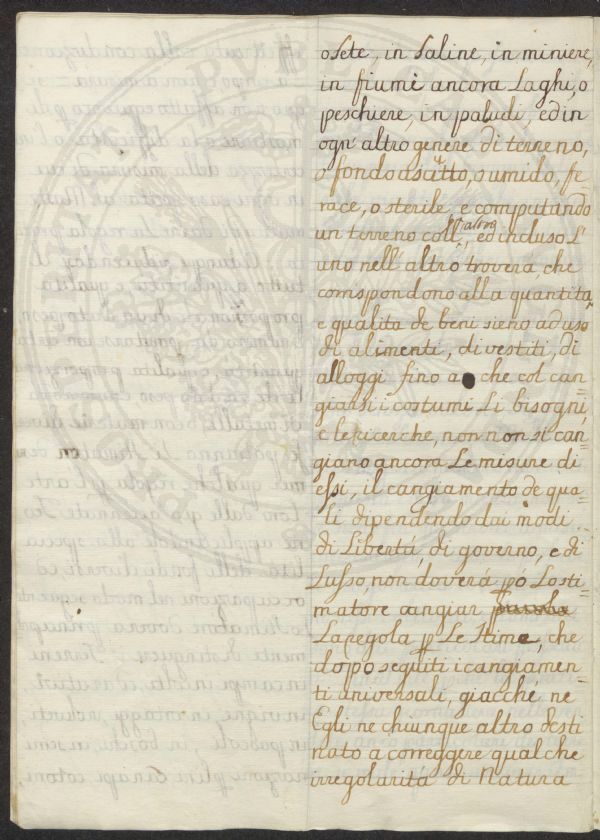 o sete, in saline, in miniere,
in fiumi ancora Laghi, o
peschiere, in paludi, ed in
ogn' altro genere di terreno,
o fondo asciutto, o umido, fe
race, o sterile, e computando
un terreno coll' altro, ed incluso L'
uno nell' altro troverà che
corrispondono alla quantità,
e qualità de beni sieno ad uso
di alimenti, di vestiti, di
alloggi fino a che col can
giarsi i costumi Li bisogni,
e le ricerche, non si can
giano ancora Le misure di
essi, il cangiamento de qua
li dipendendo dai modi
di Libertà, di governo, e di
Lusso, non doverà pò Lo sti
matore cangiar
La regola p Le stime, che
dopo seguiti i cangiamen
ti universali, giacchè ne
Egli ne chiunque altro desti
nato a correggere qualche
irregolarità di Natura